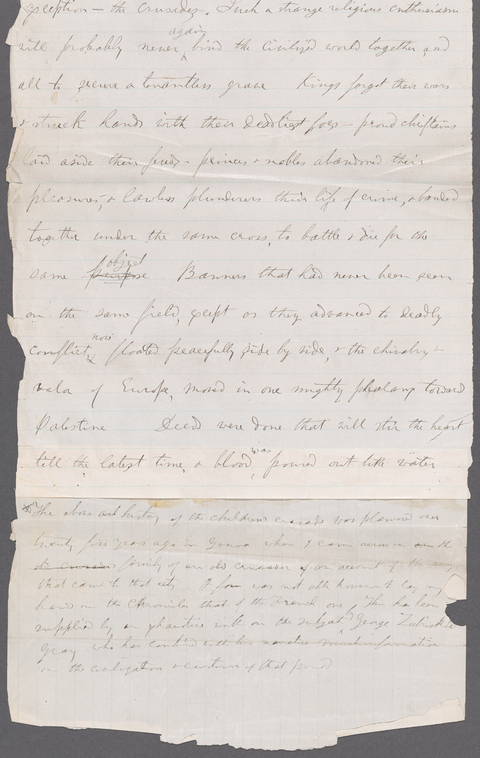 exception – the Crusades. Such a strange religious enthusiasm
will probably never again bind the civilized world together, and
all to secure a tenantless grave Kings forgot their wars
& struck hands with their deadliest foes – proud chieftains
laid aside their feuds – princes & nobles abandoned their
pleasures, & lawless plunderers their life of crime, & banded
together under the same cross, to battle & die for the
same purpose object Banners that had never been seen
on the same field, except as they advanced to deadly
conflict, now floated peacefully side by side, & the chivalry &
valor of Europe, moved in one mighty phalanx toward
Palestine Deeds were done that will stir the heart
till the latest time, & blood was poured out like water
* The above and history of the childrens crusade was planned over
twenty five years ago in Genoa when I came across
family of an old crusader of an account of the
that came to that city I was not able however to lay my
hand on the Chronicles that of the French one, This has been
supplied by an exhaustive work on the subject by George Zabriskie
Gray who has combined with his narrative much information
on the and customs of that period